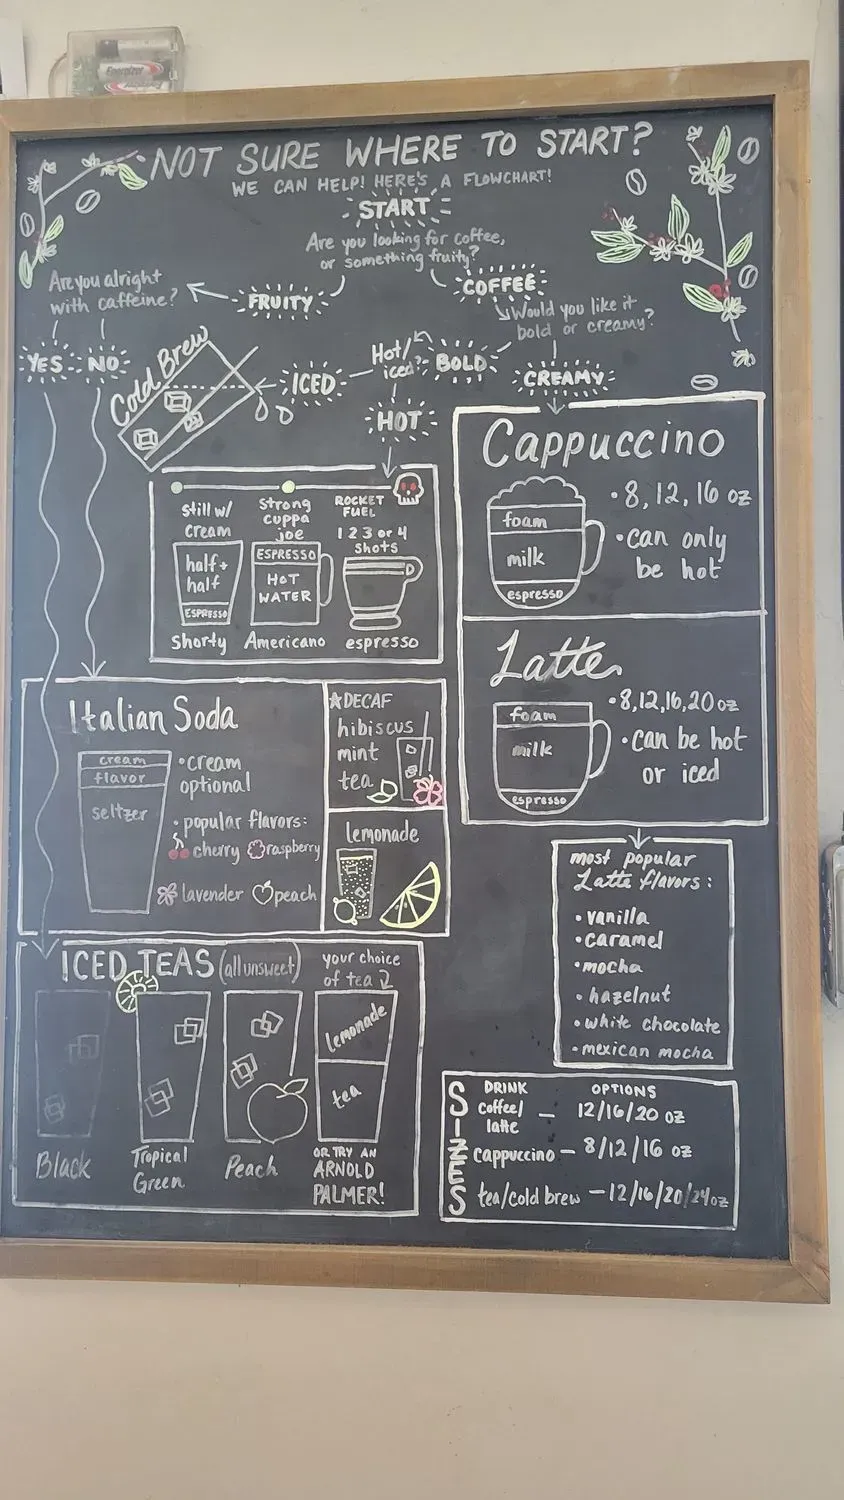 Energizer
NOT SURE WHERE TO START?
WE CAN HELP! HERE'S A FLOWCHART!
START
Are you looking for coffee,
or something fruity?
FRUITY
COFFEE
Are you alright
with caffeine?
YES
NO
Would you like it
bold or creamy?
BOLD
CREAMY
Hot/
iced?
ICED
HOT
Cold Brew
still w/
cream
half +
half
ESPRESSO
Shorty
Strong
cuppa
joe
ESPRESSO
HOT
WATER
Americano
ROCKET
FUEL
1 2 3 or 4
shots
espresso
Cappuccino
foam
milk
espresso
• 8, 12, 16 oz
• can only
be hot
Latte
foam
milk
espresso
• 8, 12, 16, 20 oz
• can be hot
or iced
most popular
Latte flavors:
• vanilla
• caramel
• mocha
• hazelnut
• white chocolate
• mexican mocha
Italian Soda
cream
flavor
seltzer
• cream
optional
• popular flavors:
cherry raspberry
lavender peach
☆DECAF
hibiscus
mint
tea
lemonade
ICED TEAS (all unsweet)
your choice
of tea
Black
Tropical
Green
Peach
lemonade
tea
OR TRY AN
ARNOLD
PALMER!
SIZES
DRINK OPTIONS
coffee/
latte — 12/16/20 oz
cappuccino — 8/12/16 oz
tea/cold brew — 12/16/20/24 oz